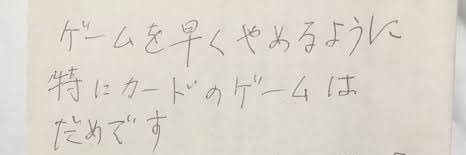 ゲームを早くやめるように
特にカードのゲームは
だめです